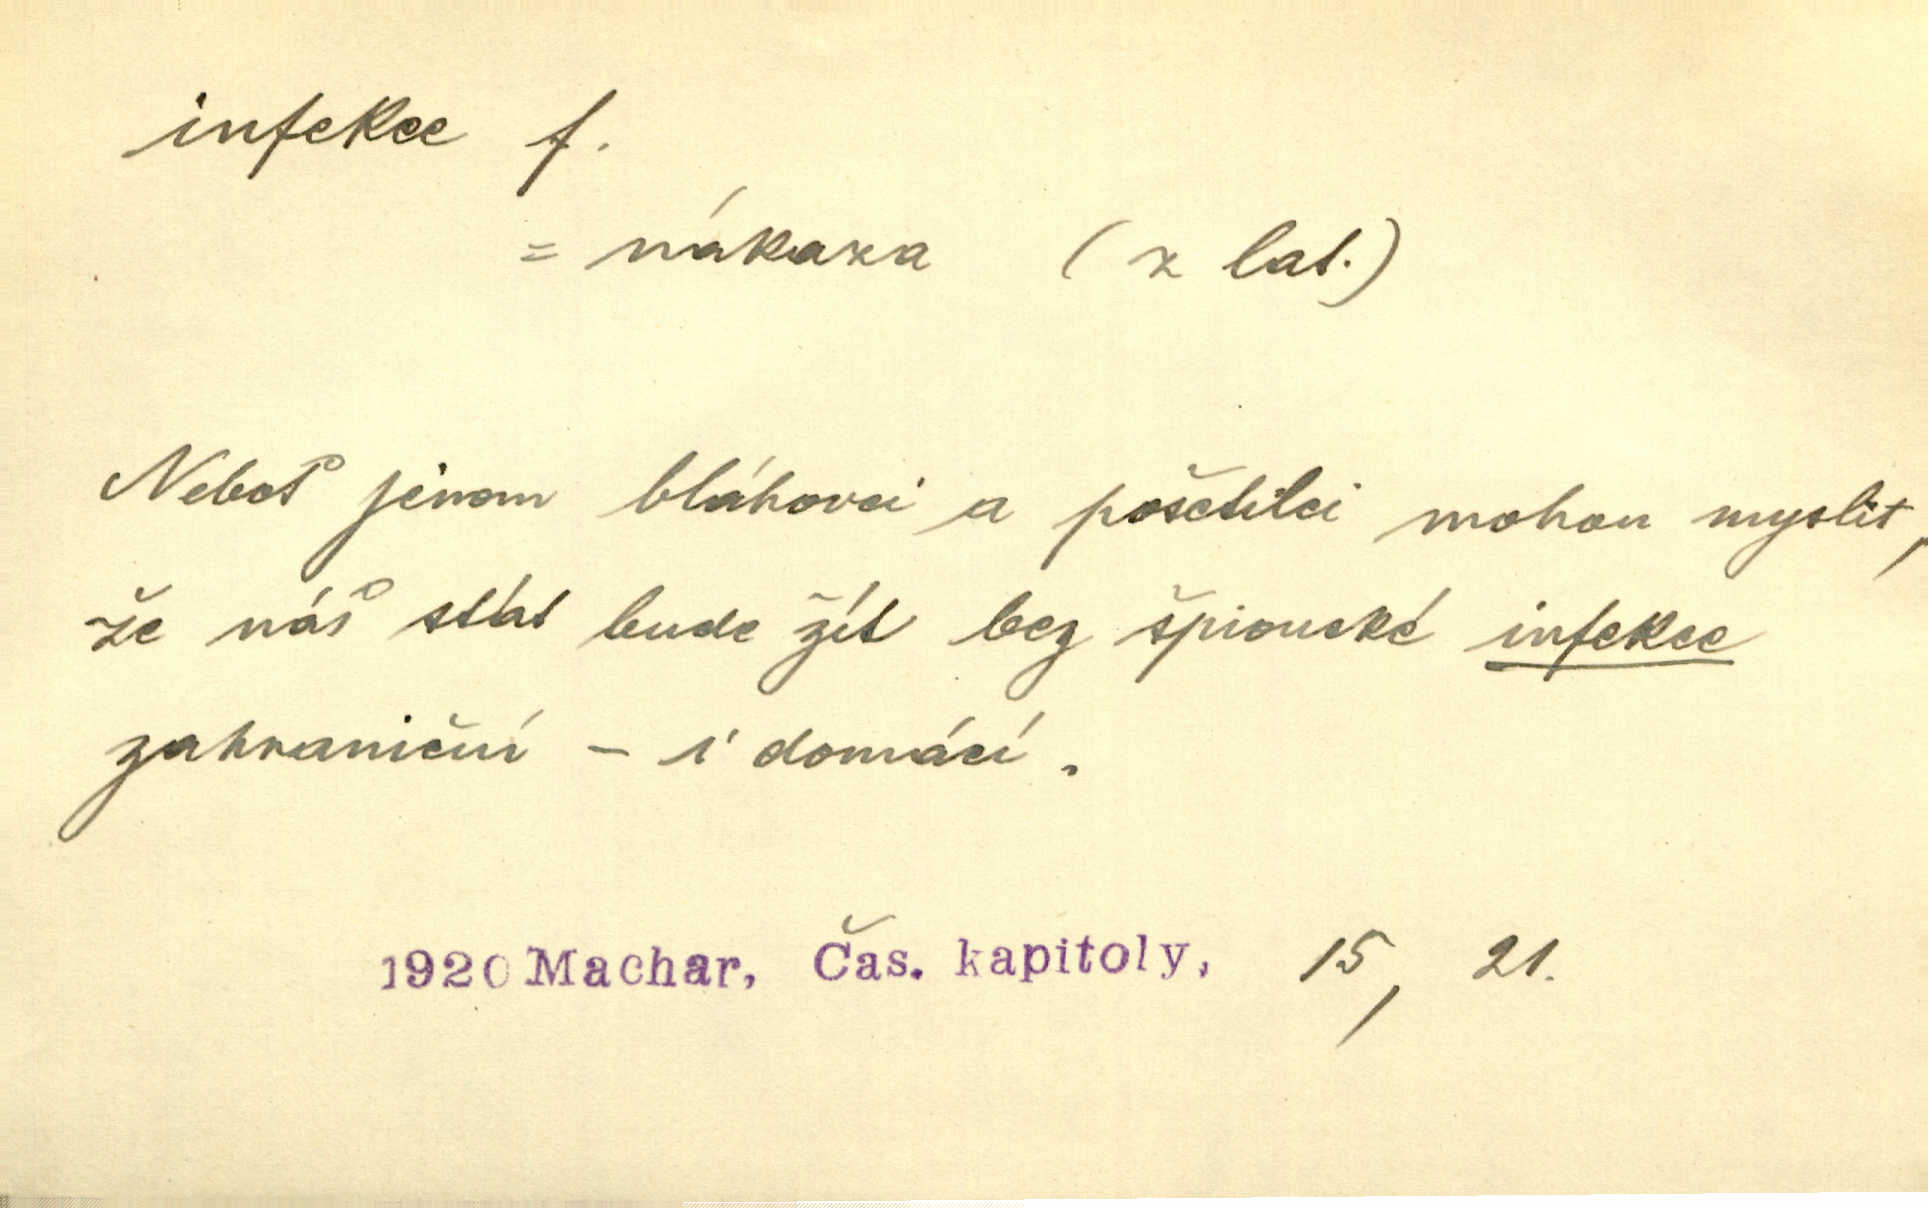 infekce f.
= nákaza (z lat.)
Neboť jenom bláhovci a pošetilci mohou myslit,
že náš stát bude žít bez špionské infekce
zahraniční – i domácí.
1920 Machar, Čas. kapitoly, 15, 21.